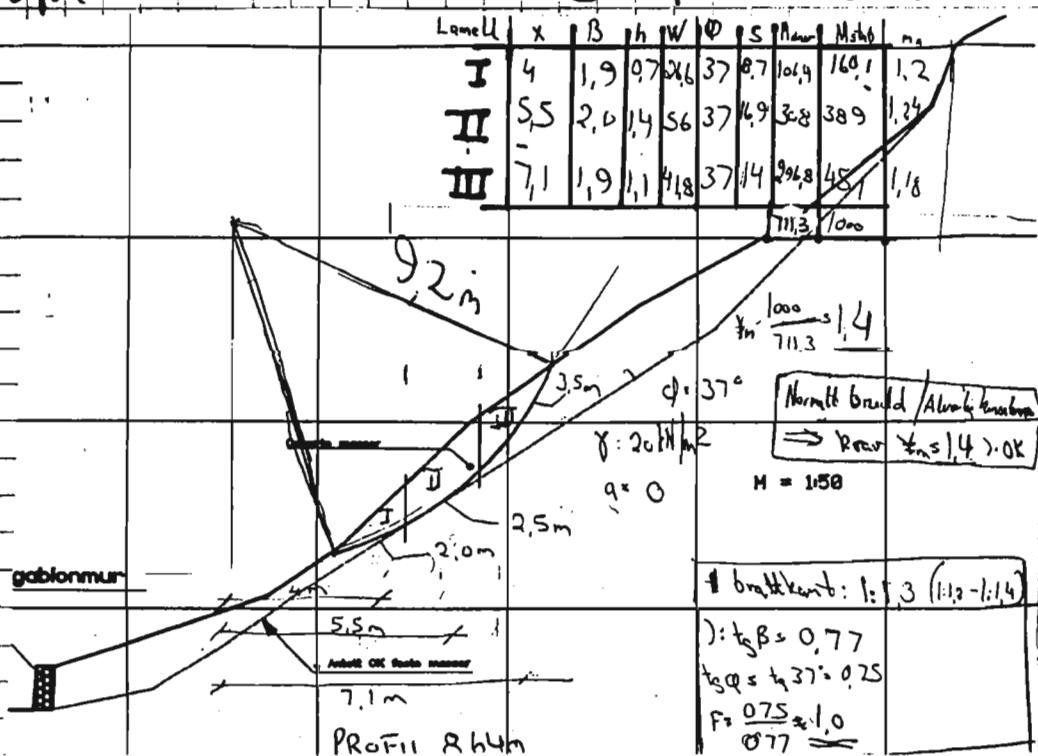 Lamell X B h W φ S Mdriv Mstab mα
I 4 1,9 0,7 26,6 37 8,7 106,4 160,1 1,2
II 5,5 2,0 1,4 56 37 16,9 308 389 1,24
III 7,1 1,9 1,1 41,8 37 14 296,8 451 1,18
711,3 1000
9,2 m
γm = 1000 / 711.3 = 1,4
3,5m
φ = 37°
γ: 20 kN/m2
q = 0
Normalt brudd /
⇒ krav γm = 1,4 ).OK
M = 1:50
III
masser
II
I
2,5m
2,0m
gabionmur
4m
5,5m
Antatt OK faste masser
7,1m
PROFIL
brattkant: 1:1,3 (1:1,2-1:1,4)
): tg β = 0,77
tg φ = tg 37° = 0,75
F = 0,75 / 0,77 ≈ 1,0